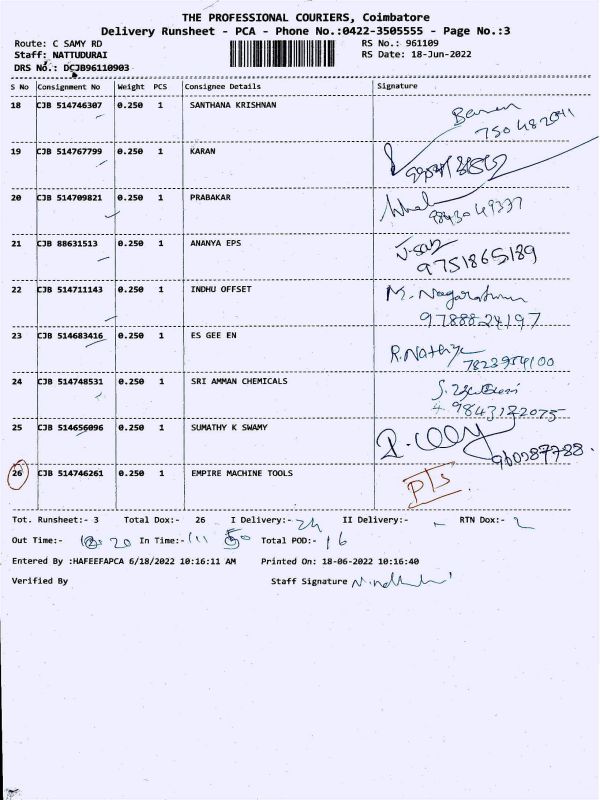 THE PROFESSIONAL COURIERS, Coimbatore
Delivery Runsheet - PCA - Phone No.:0422-3505555 - Page No.:3
Route: C SAMY RD RS No.: 961109
Staff: NATTUDURAI RS Date: 18-Jun-2022
DRS No.: DCJB96110903
S No Consignment No Weight PCS Consignee Details Signature
18 CJB 514746307 0.250 1 SANTHANA KRISHNAN
19 CJB 514767799 0.250 1 KARAN
20 CJB 514709821 0.250 1 PRABAKAR
9843049337
21 CJB 88631513 0.250 1 ANANYA EPS
9751865189
22 CJB 514711143 0.250 1 INDHU OFFSET M.
9788824197
23 CJB 514683416 0.250 1 ES GEE EN R.Nathiya
24 CJB 514748531 0.250 1 SRI AMMAN CHEMICALS
9843122075
25 CJB 514656096 0.250 1 SUMATHY K SWAMY
26 CJB 514746261 0.250 1 EMPIRE MACHINE TOOLS
Tot. Runsheet:- 3 Total Dox:- 26 I Delivery:- II Delivery:- RTN Dox:- 2
Out Time:- In Time:- Total POD:- 16
Entered By :HAFEEFAPCA 6/18/2022 10:16:11 AM Printed On: 18-06-2022 10:16:40
Verified By Staff Signature